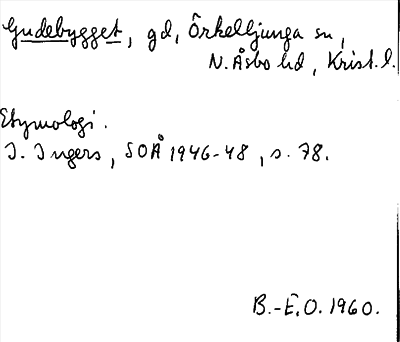 Gudebygget, gd, Örkelljunga sn,
N. Åsbo hd, Krist. l.
Etymologi.
I. Ingers, SOÅ 1946-48, s. 78.
B.-E.O. 1960.